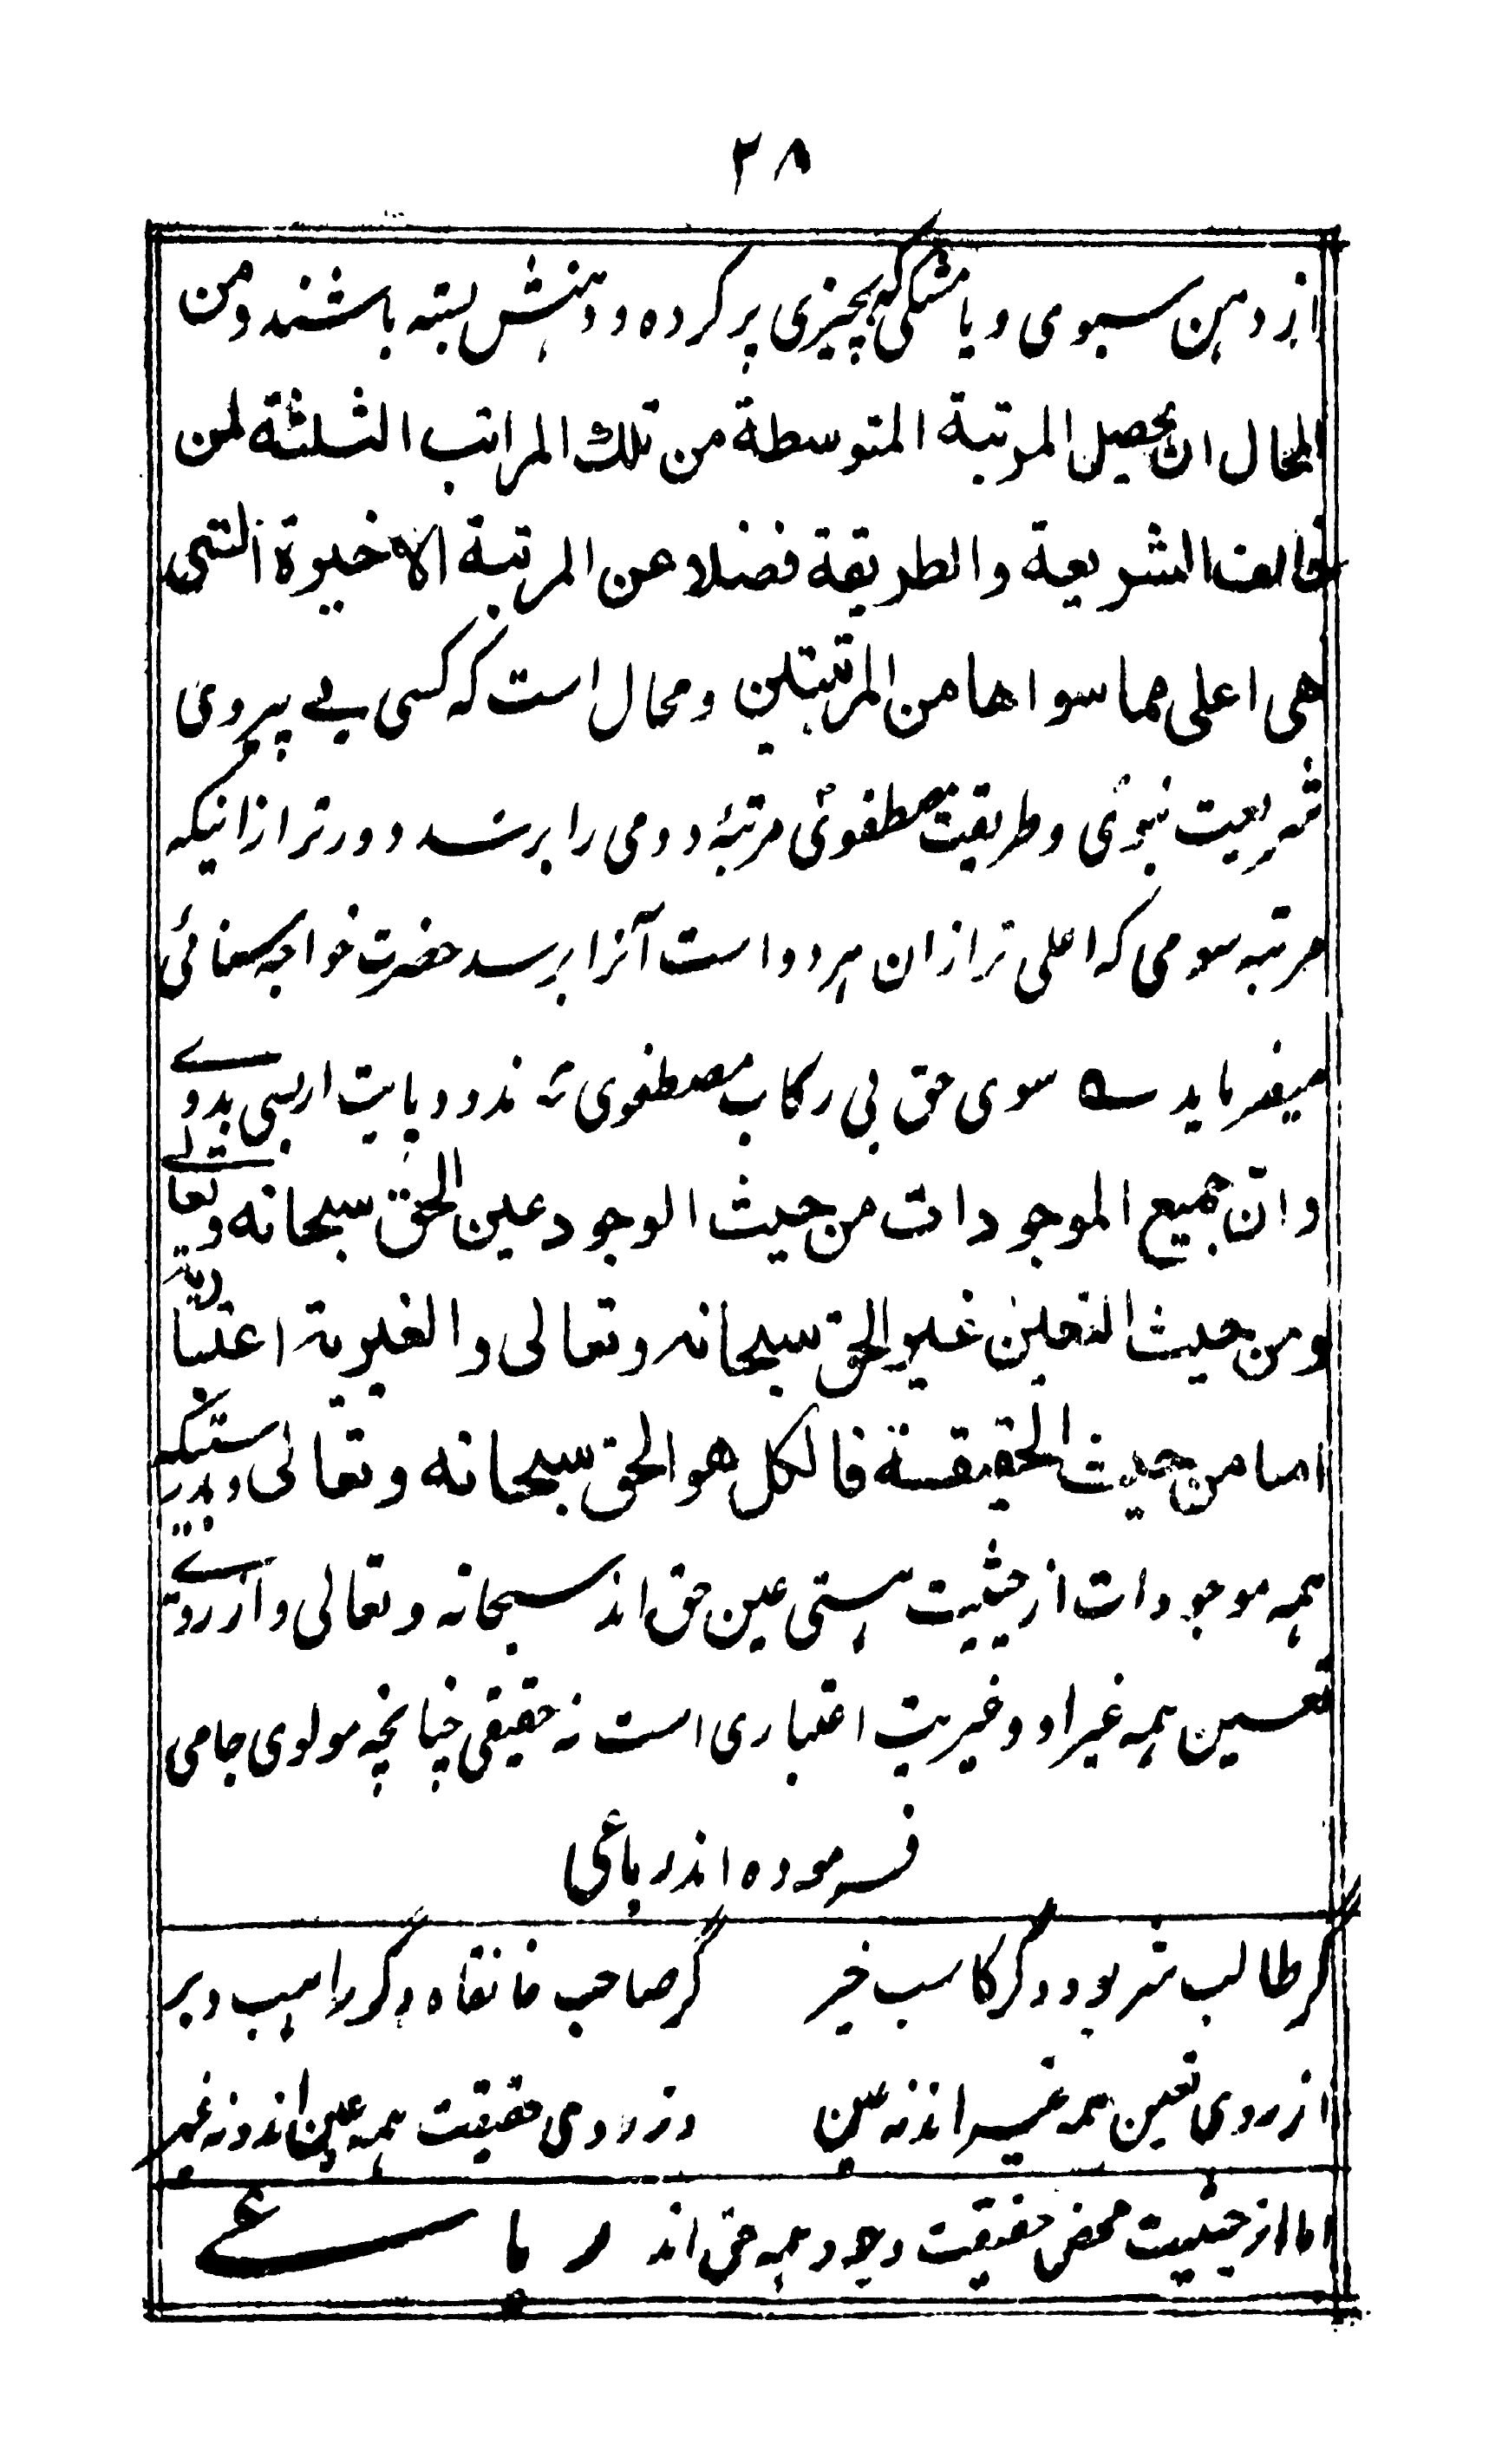 ۲۸
از دهن سبوی و یا مشکی که بچیزی پر کرده و دهنش بسته باشند و من
المحال ان یحصیل المرتبة المتوسطة من تلك المراتب الثلثة لمن
خالف الشریعة والطریقة فضلا عن المرتبة الاخیرة التی
هی اعلی مما سواها من المرتبتین و محال است که کسی بے پیروی
شریعت نبویؐ و طریقت مصطفویؐ مرتبۂ دومی را برسد دورتر از اینکه
مرتبه سومی که اعلی تر از ان هر دو است آنرا برسد حضرت خواجه سنائی
میفرماید ؎ سوی حق بی رکاب مصطفوی ؐ ندود پایت ار بسی بدوے
وانّ جمیع الموجودات من حیث الوجود عین الحق سبحانه وتعالے
ومن حیث التعین غیر الحق سبحانه وتعالی والغیریة اعتباریة
اما من حیث الحقیقة فالکل هو الحق سبحانه وتعالی و بدرستیکه
همه موجودات از حیثیت هستی عین حق اند سبحانه و تعالی و از روے
تعین همه غیر او و غیریت اعتباری است نه حقیقی چنانچه مولوی جامی
فرموده اند رباعی
گر طالب شر بود و گر کاسب خیر گر صاحب خانقاه و گر راهب دیر
از روی تعین همه غیر اند نه عین وز روی حقیقت همه عین اند و نه غیر
اما از حیثیت محض حقیقت وجود همه حق اند رباعے